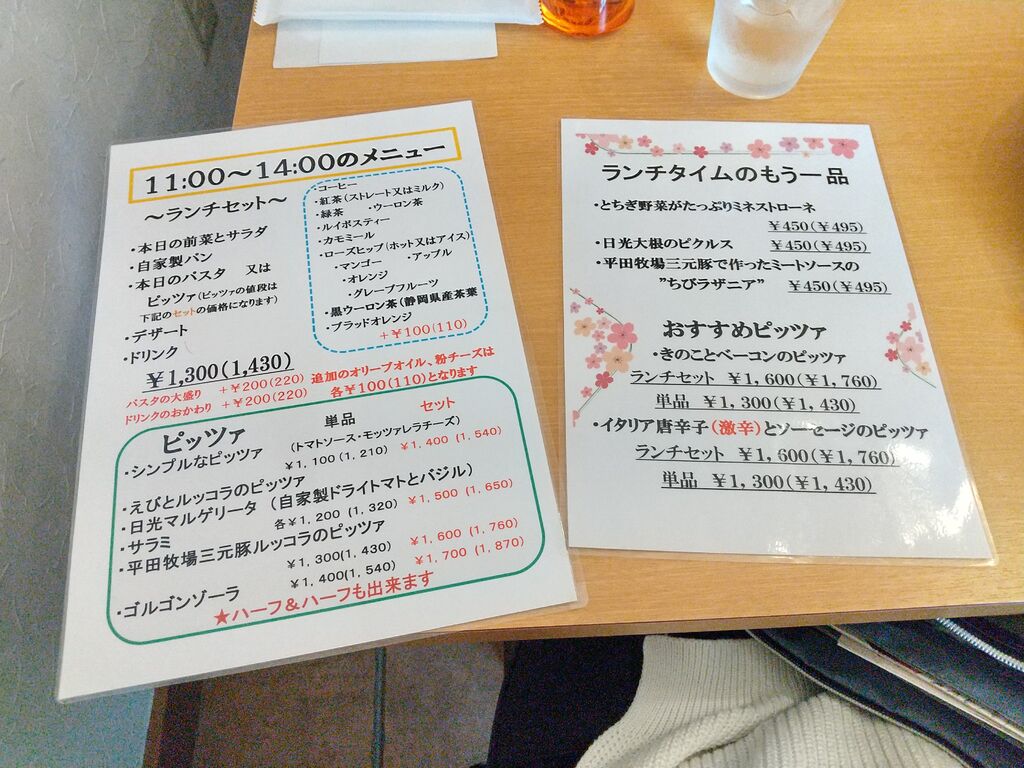 11:00～14:00のメニュー
～ランチセット～
・本日の前菜とサラダ
・自家製パン
・本日のパスタ　又は
ピッツァ(ピッツァの値段は
下記のセットの価格になります)
・デザート
・ドリンク
￥1,300(1,430)
・コーヒー
・紅茶(ストレート又はミルク)
・緑茶　・ウーロン茶
・ルイボスティー
・カモミール
・ローズヒップ(ホット又はアイス)
・マンゴー　・アップル
・オレンジ
・グレープフルーツ
・黒ウーロン茶(静岡県産茶葉
・ブラッドオレンジ
＋￥100(110)
パスタの大盛り　＋￥200(220)
ドリンクのおかわり　＋￥200(220)
追加のオリーブオイル、粉チーズは
各￥100(110)となります
ピッツァ　単品　セット
・シンプルなピッツァ　(トマトソース・モッツァレラチーズ)
￥1,100(1,210)　￥1,400(1,540)
・えびとルッコラのピッツァ
・日光マルゲリータ　(自家製ドライトマトとバジル)
・サラミ　各￥1,200(1,320)　￥1,500(1,650)
・平田牧場三元豚ルッコラのピッツァ
￥1,300(1,430)　￥1,600(1,760)
・ゴルゴンゾーラ　￥1,400(1,540)　￥1,700(1,870)
★ハーフ＆ハーフも出来ます
ランチタイムのもう一品
・とちぎ野菜がたっぷりミネストローネ
￥450(￥495)
・日光大根のピクルス　￥450(￥495)
・平田牧場三元豚で作ったミートソースの
”ちびラザニア”　￥450(￥495)
おすすめピッツァ
・きのことベーコンのピッツァ
ランチセット　￥1,600(￥1,760)
単品　￥1,300(￥1,430)
・イタリア唐辛子(激辛)とソーセージのピッツァ
ランチセット　￥1,600(￥1,760)
単品　￥1,300(￥1,430)